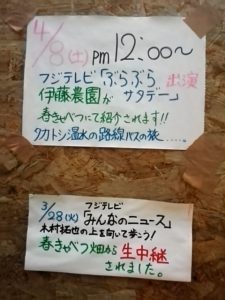 4/8(土)pm12:00〜
フジテレビ「ぶらぶら
サタデー」出演
伊藤農園が
春きゃべつにて紹介されます!!
タカトシ温水の路線バスの旅......
3/28(火)フジテレビ
「みんなのニュース」
木村拓也の上を向いて歩こう!
春きゃべつ畑から生中継
されました。